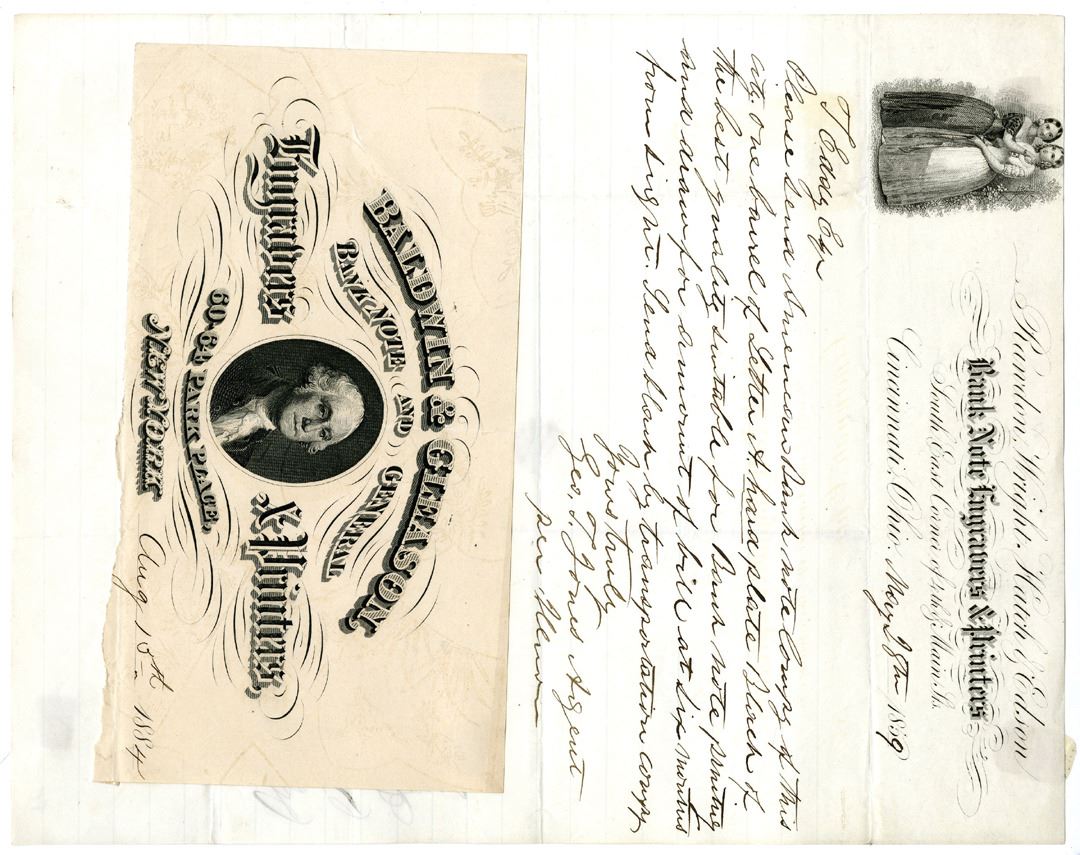 Rawdon, Wright, Hatch & Edson
Bank Note Engravers & Printers
South East Corner of 4th & Main Sts.
Cincinnati, Ohio. May 28th 1859
T Eddy Esqr
Please send American bank note Compy of this
city one barrel of Letter A hard plate Black of
the best quality suitable for bank note printing
and draw for amount of bill at six months
from sight. Send black by transportation compy
Yours truly
Geo. T. Jones Agent
per
BALDWIN & GLEASON,
BANK NOTE AND GENERAL
Engravers & Printers,
60-64 PARK PLACE,
NEW YORK
Aug 15th 1884